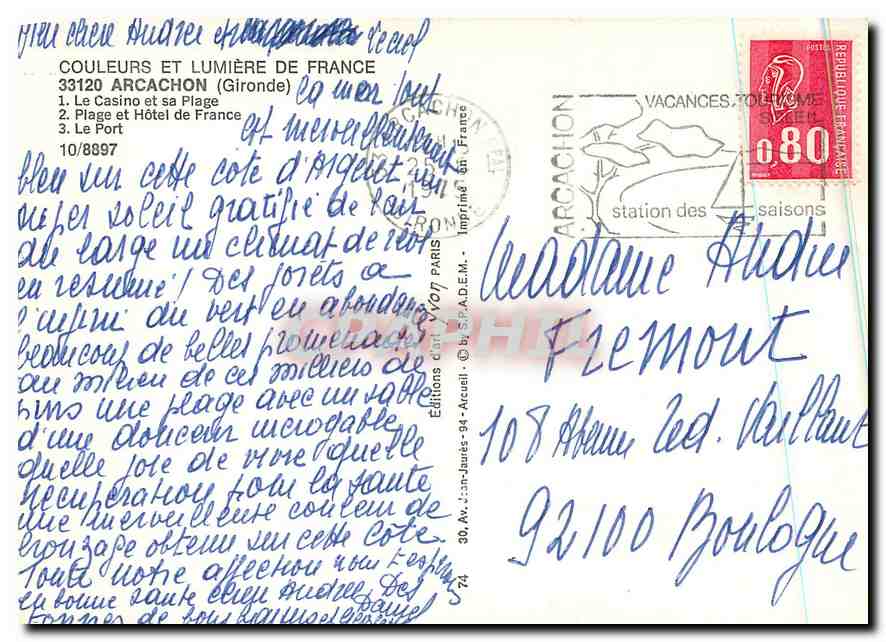 COULEURS ET LUMIÈRE DE FRANCE
33120 ARCACHON (Gironde)
1. Le Casino et sa Plage
2. Plage et Hôtel de France
3. Le Port
10/8897
cher Andree
la mer tout
est merveilleusement
bleu sur cette cote d'Argent un
super soleil gratifie de l'air
du large un climat de
en resumé! Des forêts a
l'infini du vert en abondance
beaucoup de belles promenades
au milieu de ces milliers de
pins une plage avec un sable
d'une douceur incroyable
quelle joie de vivre quelle
récupération pour la sante
une merveilleuse couleur de
bronzage obtenu sur cette côte.
Toute notre affection nous t'esperons
en bonne sante cher Andree Des
tonnes de Daniel
Éditions d'art YVON PARIS
30, Av. Jean-Jaurès-94 - Arcueil - © by S.P.A.D.E.M. - Imprimé en France
74
ARCACHON
GIRONDE
ARCACHON
VACANCES.TOURISME
SOLEIL
station des saisons
POSTES
REPUBLIQUE FRANÇAISE
0,80
CPAPHIL
Madame Andree
Fremont
108 Ved. Vaillant
92100 Boulogne